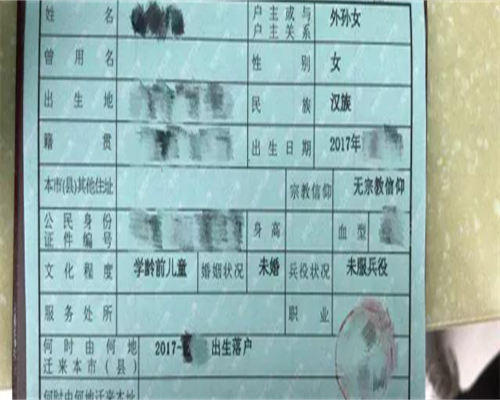 姓名 户主或与户主关系 外孙女
曾用名 性别 女
出生地 民族 汉族
籍贯 出生日期 2017年
本市(县)其他住址 宗教信仰 无宗教信仰
公民身份证件编号 身高 血型
文化程度 学龄前儿童 婚姻状况 未婚 兵役状况 未服兵役
服务处所 职业
何时由何地迁来本市(县) 2017- 出生落户
何时由何地迁来本址